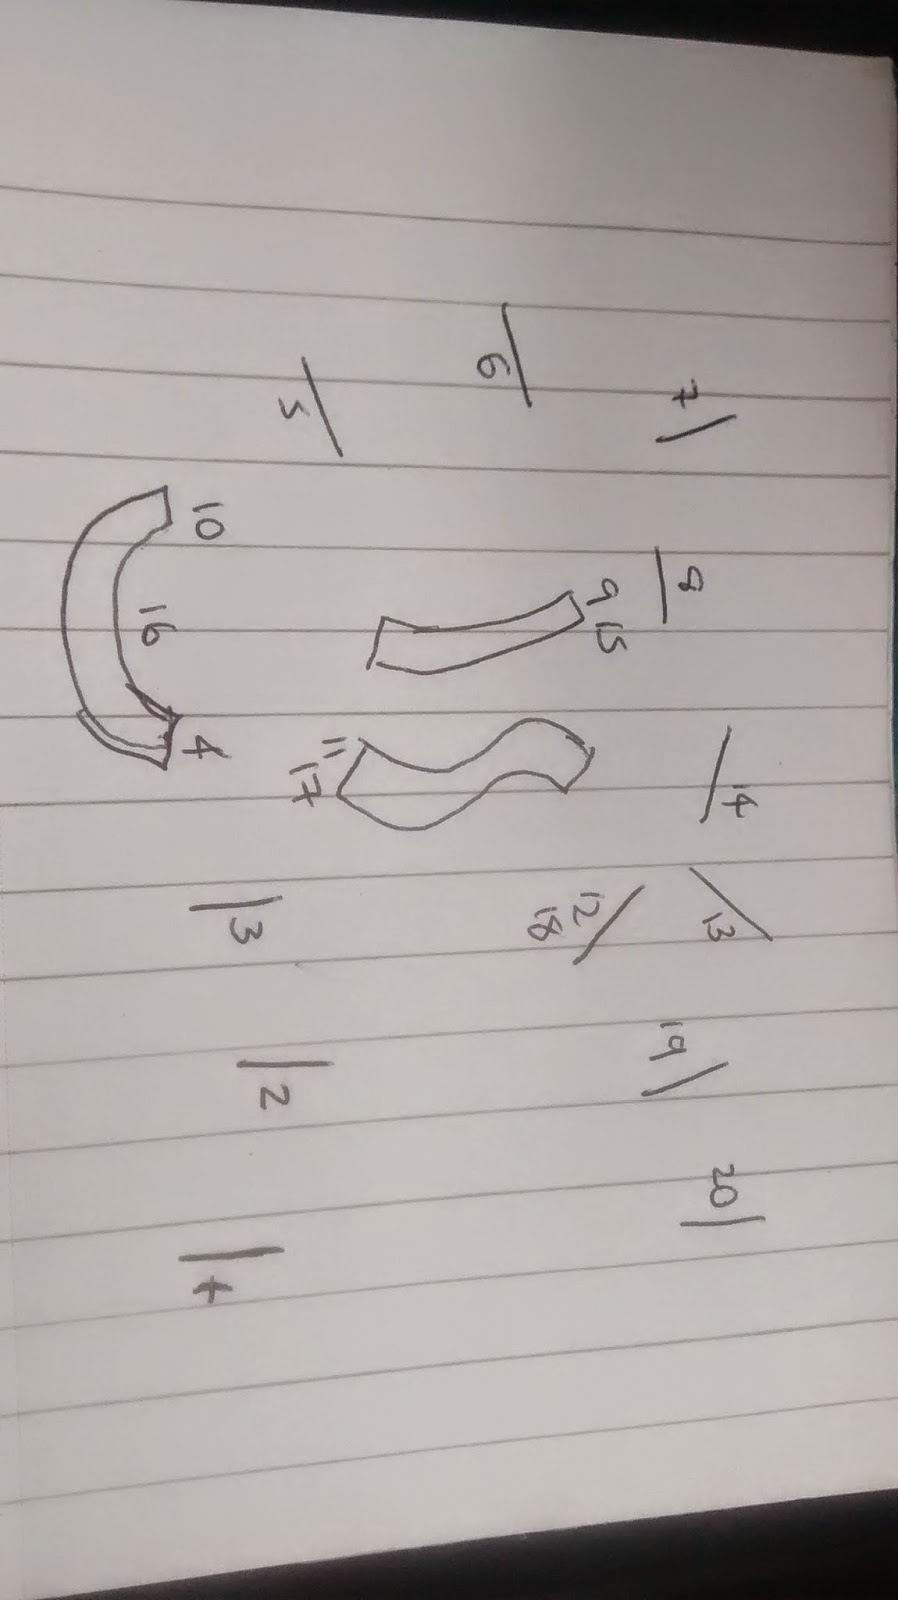 7
8
14
13
19
20
6
9
15
12
18
5
11
17
10
16
4
3
2
1